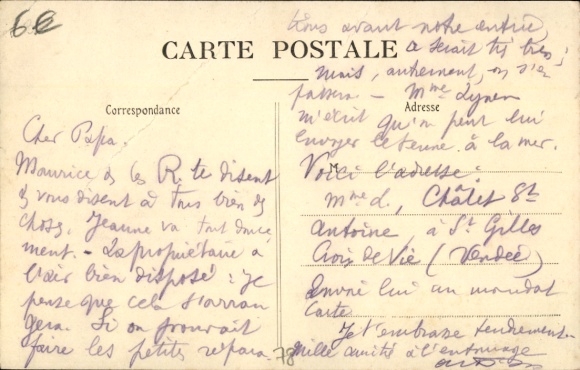 6€
CARTE POSTALE
Correspondance
Adresse
Cher Papa.
Maurice et les R. te disent
et vous disent à tous bien des
choses. Jeanne va tout douce
ment. - La propriétaire a
l'air bien disposé : je
pense que cela s'arran
gera. Si on pouvait
faire les petites répara-
tions avant notre entrée,
ce serait très bien ;
Mais, autrement, on s'en
passera - Mme
m'écrit qu'on peut lui
envoyer à la mer.
Voici l'adresse :
Mme d., Châlet St
Antoine, à St Gilles
Croix de Vie (Vendée)
Envoie lui un mandat
Carte
Je t'embrasse tendrement
Mille amitiés à l'entourage
78